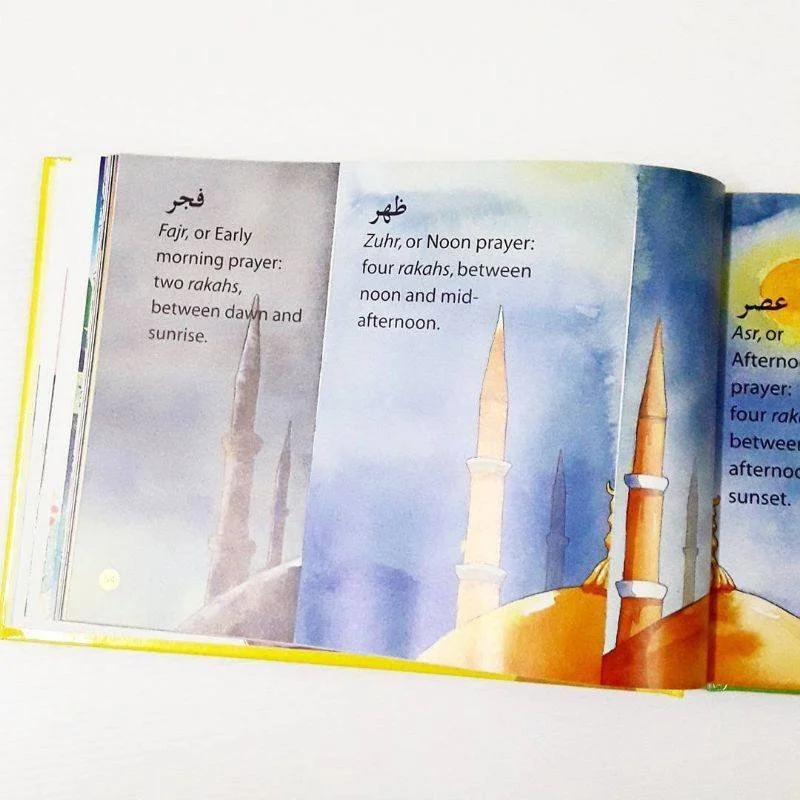 فجر
Fajr, or Early
morning prayer:
two rakahs,
between dawn and
sunrise.
ظهر
Zuhr, or Noon prayer:
four rakahs, between
noon and mid-
afternoon.
عصر
Asr, or
Afterno
prayer:
four rak
between
afternoo
sunset.